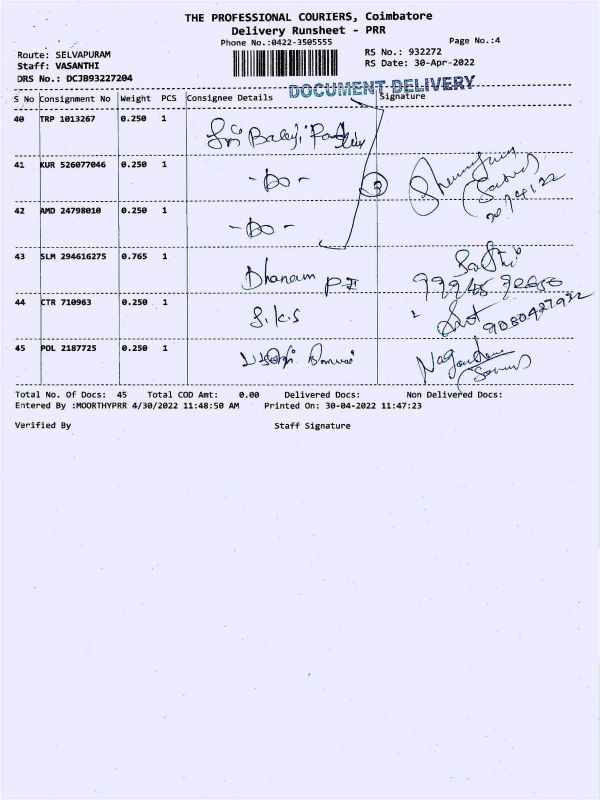 THE PROFESSIONAL COURIERS, Coimbatore
Delivery Runsheet - PRR
Phone No.:0422-3505555
Page No.:4
Route: SELVAPURAM
RS No.: 932272
Staff: VASANTHI
RS Date: 30-Apr-2022
DRS No.: DCJB93227204
DOCUMENT DELIVERY
S No Consignment No Weight PCS Consignee Details Signature
40 TRP 1013267 0.250 1
41 KUR 526077046 0.250 1 -Do-
3
42 AMD 24798010 0.250 1 -Do-
43 SLM 294616275 0.765 1 Dhanam
44 CTR 710963 0.250 1 S.K.S
9080427932
45 POL 2187725 0.250 1
Total No. Of Docs: 45 Total COD Amt: 0.00 Delivered Docs: Non Delivered Docs:
Entered By :MOORTHYPRR 4/30/2022 11:48:50 AM Printed On: 30-04-2022 11:47:23
Verified By Staff Signature